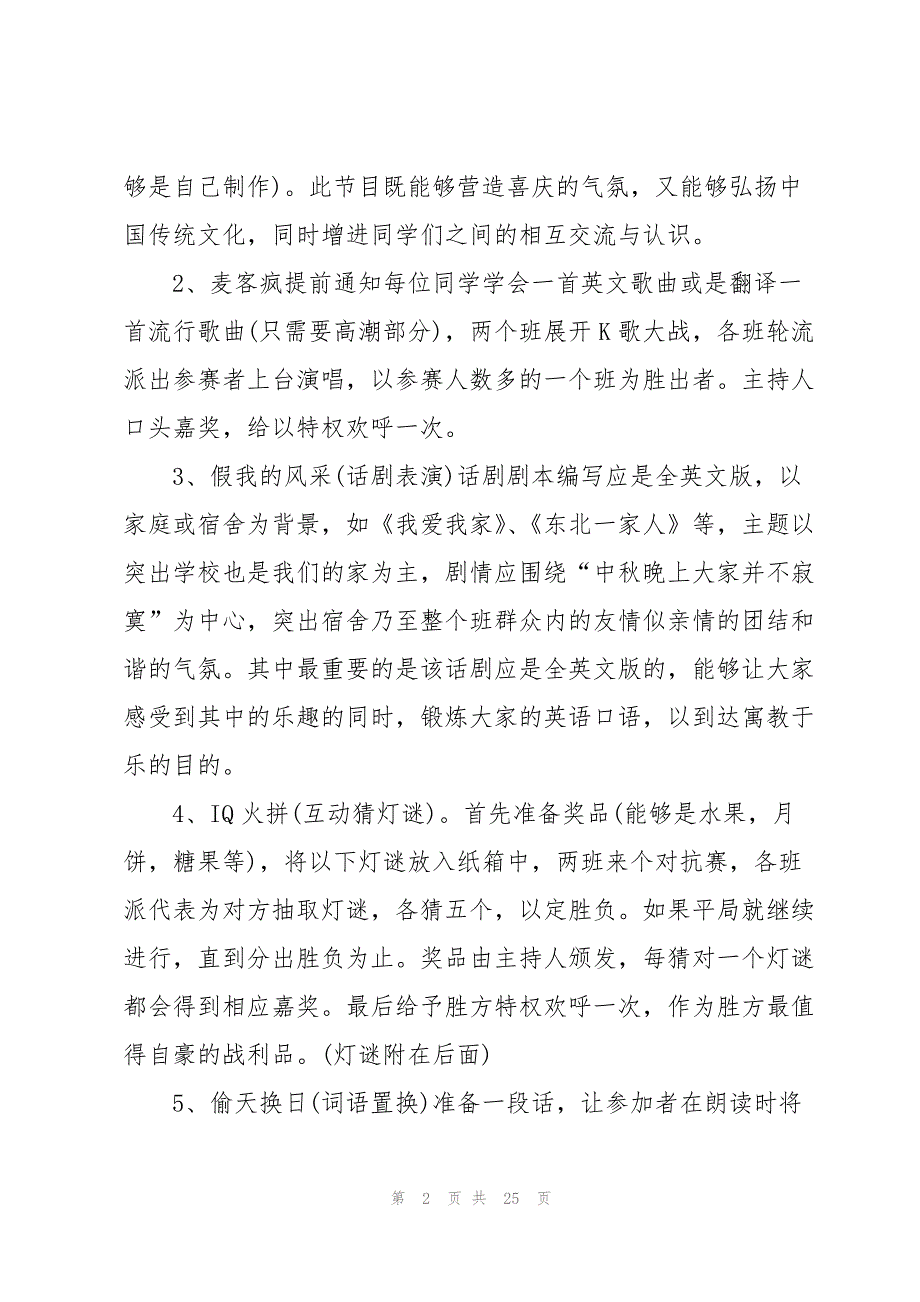 够是自己制作)。此节目既能够营造喜庆的气氛，又能够弘扬中
国传统文化，同时增进同学们之间的相互交流与认识。
2、麦客疯提前通知每位同学学会一首英文歌曲或是翻译一
首流行歌曲(只需要高潮部分)，两个班展开 K 歌大战，各班轮流
派出参赛者上台演唱，以参赛人数多的一个班为胜出者。主持人
口头嘉奖，给以特权欢呼一次。
3、假我的风采(话剧表演)话剧剧本编写应是全英文版，以
家庭或宿舍为背景，如《我爱我家》、《东北一家人》等，主题以
突出学校也是我们的家为主，剧情应围绕“中秋晚上大家并不寂
寞”为中心，突出宿舍乃至整个班群众内的友情似亲情的团结和
谐的气氛。其中最重要的是该话剧应是全英文版的，能够让大家
感受到其中的乐趣的同时，锻炼大家的英语口语，以到达寓教于
乐的目的。
4、IQ 火拼(互动猜灯谜)。首先准备奖品(能够是水果，月
饼，糖果等)，将以下灯谜放入纸箱中，两班来个对抗赛，各班
派代表为对方抽取灯谜，各猜五个，以定胜负。如果平局就继续
进行，直到分出胜负为止。奖品由主持人颁发，每猜对一个灯谜
都会得到相应嘉奖。最后给予胜方特权欢呼一次，作为胜方最值
得自豪的战利品。(灯谜附在后面)
5、偷天换日(词语置换)准备一段话，让参加者在朗读时将
第 2 页 共 25 页